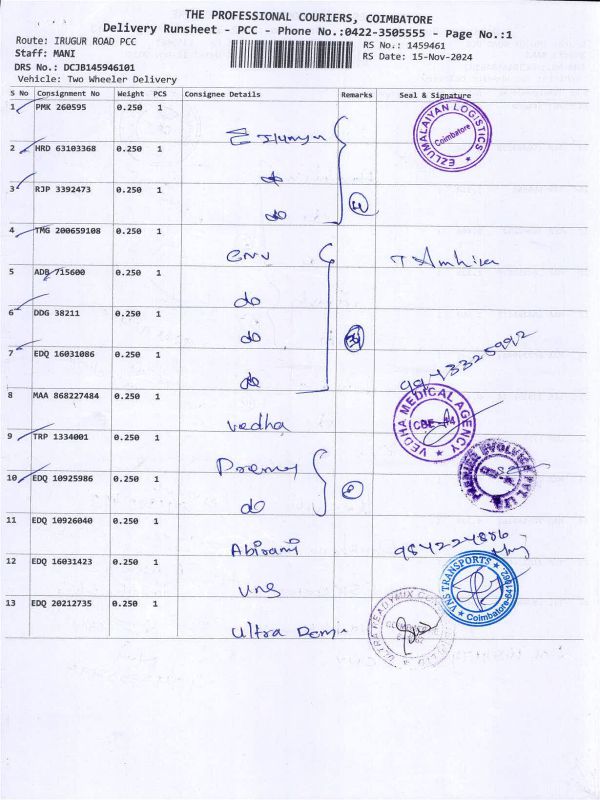 THE PROFESSIONAL COURIERS, COIMBATORE
Delivery Runsheet - PCC - Phone No.:0422-3505555 - Page No.:1
Route: IRUGUR ROAD PCC
RS No.: 1459461
Staff: MANI
RS Date: 15-Nov-2024
DRS No.: DCJB145946101
Vehicle: Two Wheeler Delivery
S No Consignment No Weight PCS Consignee Details Remarks Seal & Signature
1 PMK 260595 0.250 1
EZLUMALAIYAN LOGISTICS
Coimbatore
2 HRD 63103368 0.250 1
do
3 RJP 3392473 0.250 1
do
4 TMG 200659108 0.250 1
5 ADB 715600 0.250 1
do
6 DDG 38211 0.250 1
do
7 EDQ 16031086 0.250 1
do
9943325992
8 MAA 868227484 0.250 1
vedha
VEDHA MEDICAL AGENCY
CBE - 14
9 TRP 1334001 0.250 1
10 EDQ 10925986 0.250 1
do
11 EDQ 10926040 0.250 1
Abirami
12 EDQ 16031423 0.250 1
VNS
VNS TRANSPORTS
13 EDQ 20212735 0.250 1
Ultra